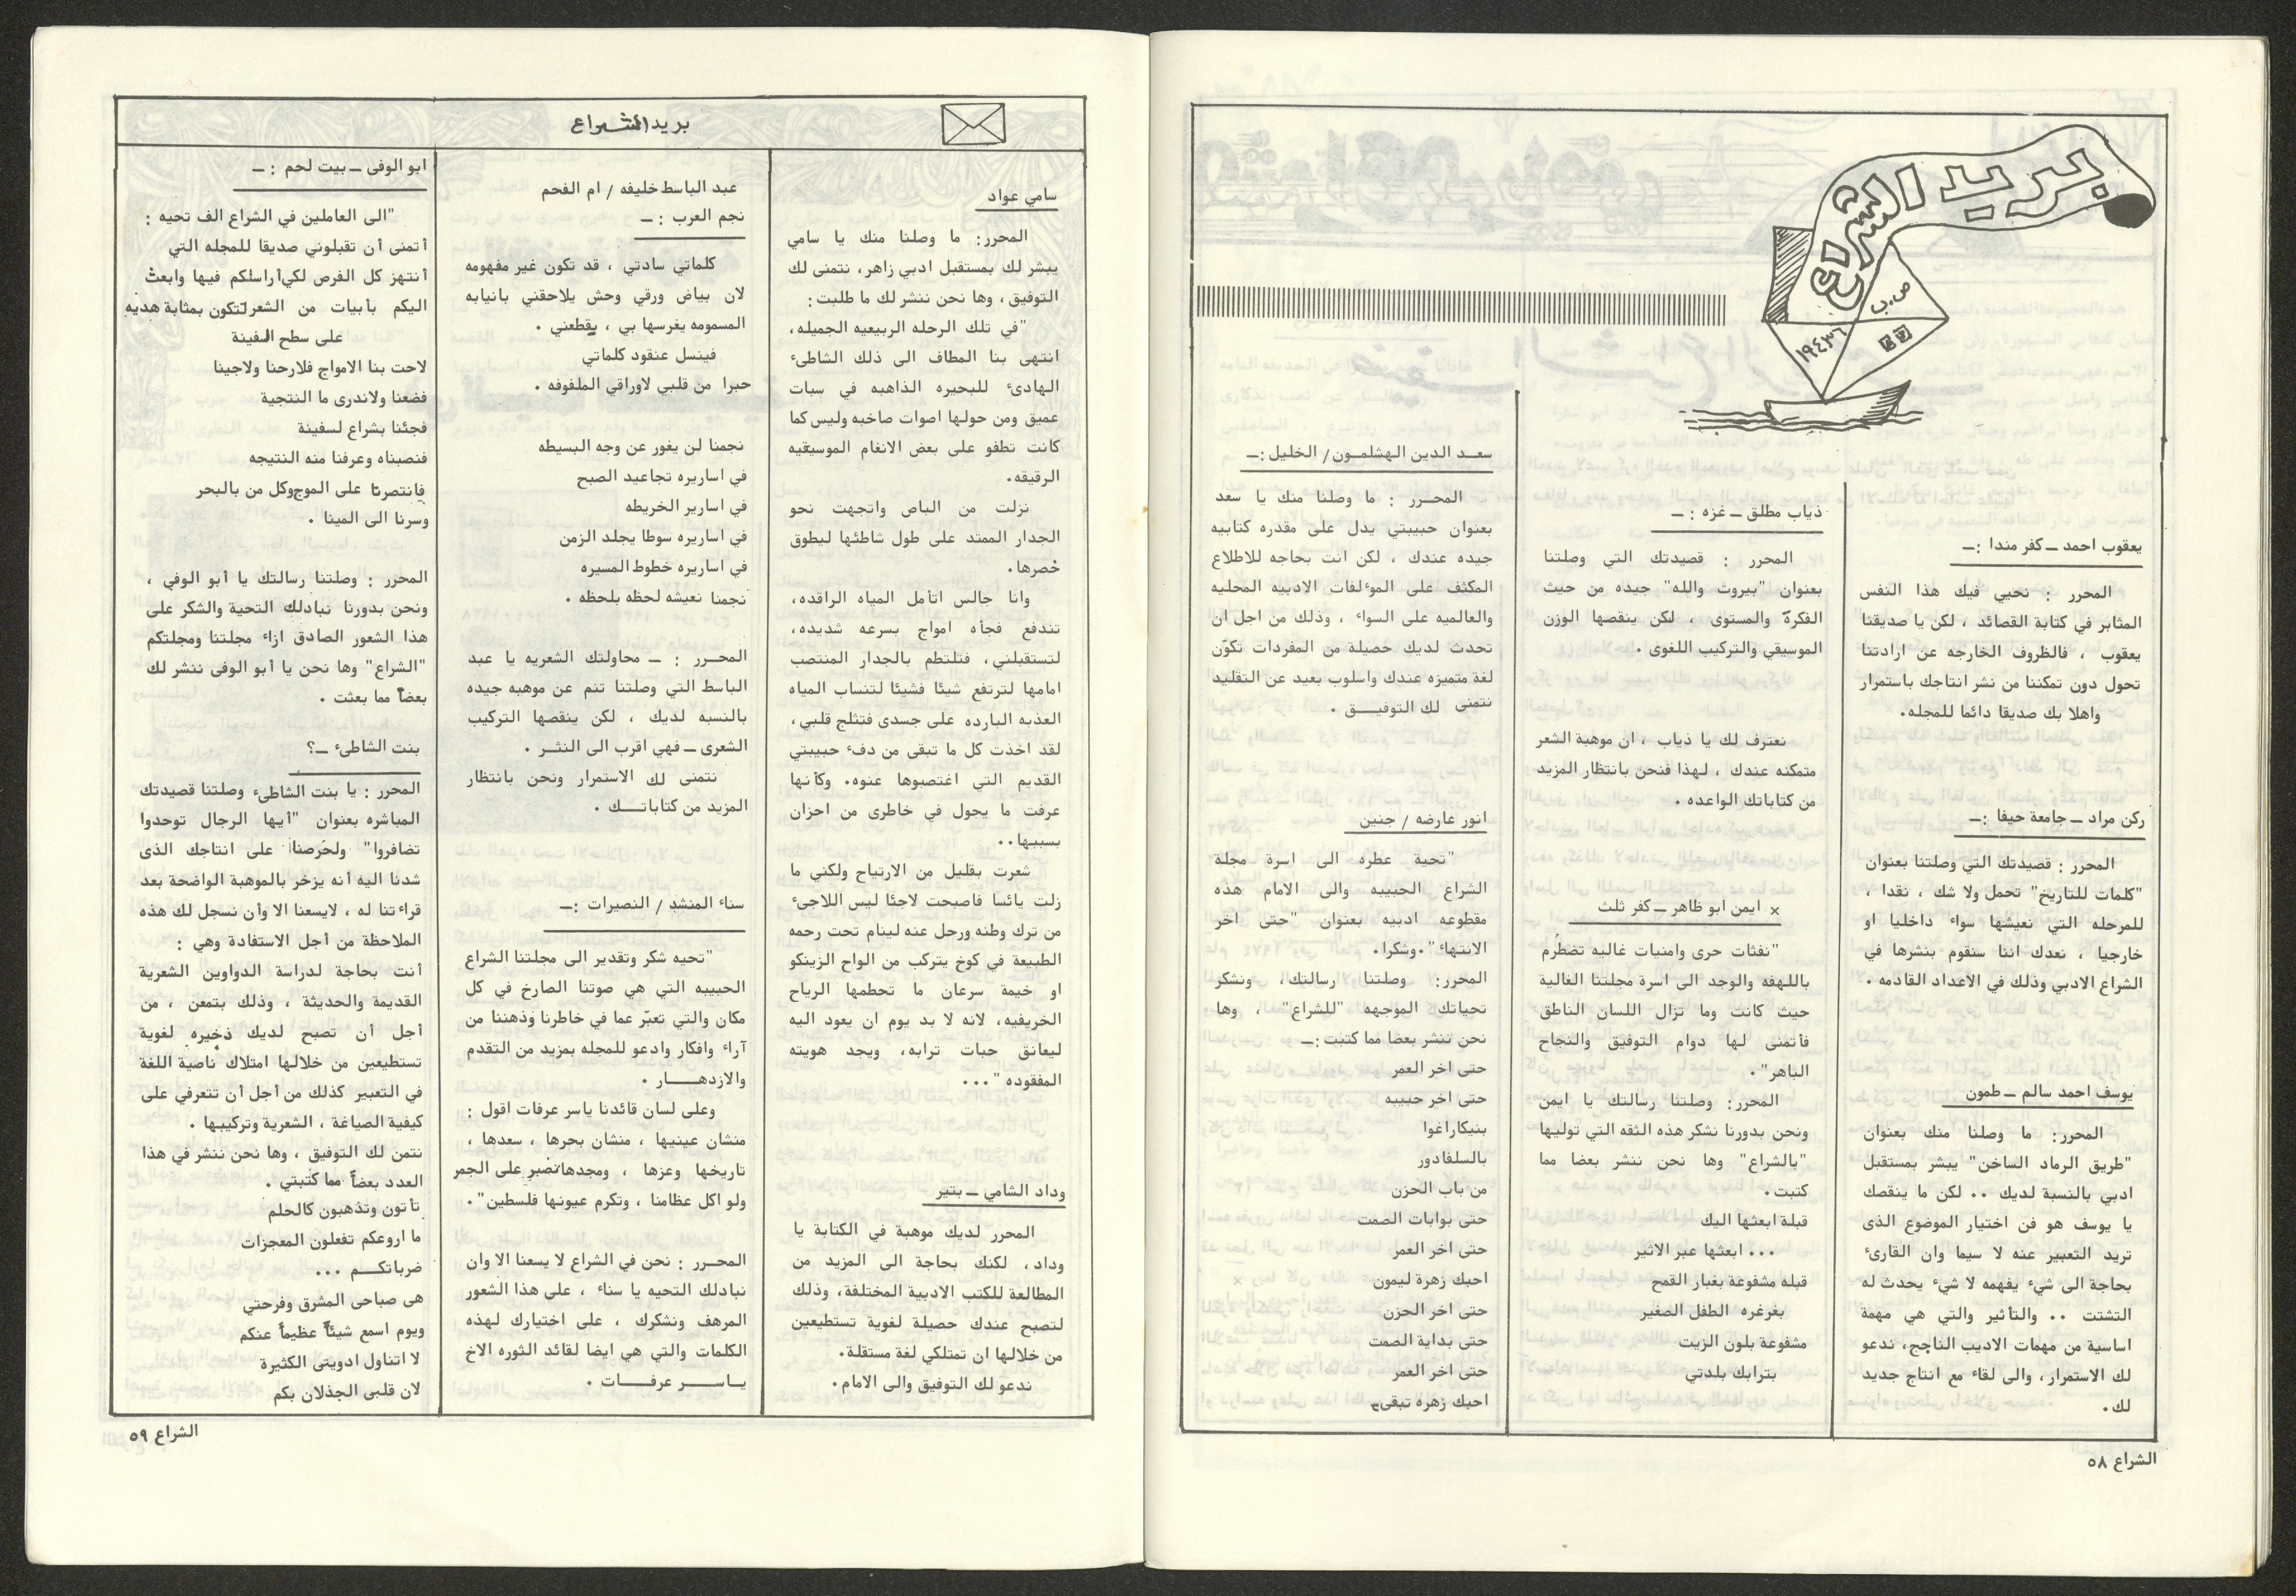 بريد الشراع
ص.ب
١٩٤٣٦
يعقوب احمد ـ كفر مندا :ـ
المحرر : نحيي فيك هذا النفس
المثابر في كتابة القصائد ، لكن يا صديقنا
يعقوب ، فالظروف الخارجه عن ارادتنا
تحول دون تمكننا من نشر انتاجك باستمرار
واهلا بك صديقا دائما للمجله.
ركن مراد ـ جامعة حيفا :ـ
المحرر : قصيدتك التي وصلتنا بعنوان
"كلمات للتاريخ" تحمل ولا شك ، نقدا ،
للمرحله التي نعيشها سواء داخليا او
خارجيا ، نعدك اننا سنقوم بنشرها في
الشراع الادبي وذلك في الاعداد القادمه .
يوسف احمد سالم ـ طمون
المحرر: ما وصلنا منك بعنوان
"طريق الرماد الساخن" يبشر بمستقبل
ادبي بالنسبة لديك .. لكن ما ينقصك
يا يوسف هو فن اختيار الموضوع الذى
تريد التعبير عنه لا سيما وان القارىء
بحاجة الى شيء يفهمه لا شيء يحدث له
التشتت .. والتأثير والتي هي مهمة
اساسية من مهمات الاديب الناجح، ندعو
لك الاستمرار، والى لقاء مع انتاج جديد
لك.
ذياب مطلق ـ غزه : ـ
المحرر : قصيدتك التي وصلتنا
بعنوان "بيروت والله" جيده من حيث
الفكرة والمستوى ، لكن ينقصها الوزن
الموسيقي والتركيب اللغوى .
نعترف لك يا ذياب ، ان موهبة الشعر
متمكنه عندك ، لهذا فنحن بانتظار المزيد
من كتاباتك الواعده .
× ايمن ابو ظاهر ـ كفر ثلث
"نفثات حرى وامنيات غاليه تضطرم
باللهفه والوجد الى اسرة مجلتنا الغالية
حيث كانت وما تزال اللسان الناطق
فأتمنى لها دوام التوفيق والنجاح
الباهر".
المحرر: وصلتنا رسالتك يا ايمن
ونحن بدورنا نشكر هذه الثقه التي توليها
"بالشراع" وها نحن ننشر بعضا مما
كتبت.
قبلة ابعثها اليك
... ابعثها عبر الاثير
قبله مشفوعة بغبار القمح
بغرغره الطفل الصغير
مشفوعة بلون الزيت
بترابك بلدتي
سعـد الدين الهشلمـون/ الخليل :ـ
المحـرر : ما وصلنا منك يا سعد
بعنوان حبيبتي يدل على مقدره كتابيه
جيده عندك ، لكن انت بحاجه للاطلاع
المكثف على المؤلفات الادبيه المحليه
والعالميه على السواء ، وذلك من اجل ان
تحدث لديك حصيلة من المفردات تكوّن
لغة متميزه عندك واسلوب بعيد عن التقليد
نتمنى لك التوفيـــق .
انور عارضه / جنين
"تحية عطره الى اسرة مجلة
الشراع الحبيبه والى الامام هذه
مقطوعه ادبيه بعنوان "حتى اخر
الانتهاء".وشكرا.
المحرر: وصلتنا رسالتك، ونشكر
تحياتك الموجهه "للشراع" ، وها
نحن ننشر بعضا مما كتبت :ـ
حتى اخر العمر
حتى اخر حبيبه
بنيكاراغوا
بالسلفادور
من باب الحزن
حتى بوابات الصمت
حتى اخر العمر
احبك زهرة ليمون
حتى اخر الحزن
حتى بداية الصمت
حتى اخر العمر
احبك زهره تبقى
الشراع ٥٨
بريد الشراع
سامي عواد
المحرر: ما وصلنا منك يا سامي
يبشر لك بمستقبل ادبي زاهر، نتمنى لك
التوفيق ، وها نحن ننشر لك ما طلبت:
"في تلك الرحله الربيعيه الجميله،
انتهى بنا المطاف الى ذلك الشاطىء
الهادىء للبحيره الذاهبه في سبات
عميق ومن حولها اصوات صاخبه وليس كما
كانت تطفو على بعض الانغام الموسيقيه
الرقيقه.
نزلت من الباص واتجهت نحو
الجدار الممتد على طول شاطئها ليطوق
خصرها.
وانا جالس اتأمل المياه الراقده،
تندفع فجأه امواج بسرعه شديده،
لتستقبلني، فتلتطم بالجدار المنتصب
امامها لترتفع شيئا فشيئا لتنساب المياه
العذبه البارده على جسدى فتثلج قلبي،
لقد اخذت كل ما تبقى من دفء حبيبتي
القديم التي اغتصبوها عنوه. وكأنها
عرفت ما يجول في خاطرى من احزان
بسببها..
شعرت بقليل من الارتياح ولكني ما
زلت يائسا فاصبحت لاجئا ليس اللاجىء
من ترك وطنه ورحل عنه لينام تحت رحمه
الطبيعة في كوخ يتركب من الواح الزينكو
او خيمة سرعان ما تحطمها الرياح
الخريفيه، لانه لا بد يوم ان يعود اليه
ليعانق حبات ترابه، ويجد هويته
المفقوده"...
وداد الشامي ـ بتير
المحرر لديك موهبة في الكتابة يا
وداد، لكنك بحاجة الى المزيد من
المطالعة للكتب الادبية المختلفة، وذلك
لتصبح عندك حصيلة لغوية تستطيعين
من خلالها ان تمتلكي لغة مستقلة.
ندعو لك التوفيق والى الامام.
عبد الباسط خليفه / ام الفحم
نجم العرب : ـ
كلماتي سادتي ، قد تكون غير مفهومه
لان بياض ورقي وحش يلاحقني بانيابه
المسمومه يغرسها بي ، يقطعني .
فينسل عنقود كلماتي
حبرا من قلبي لاوراقي الملفوفه .
نجمنا لن يغور عن وجه البسيطه
في اساريره تجاعيد الصبح
في اسارير الخريطه
في اساريره سوطا يجلد الزمن
في اساريره خطوط المسيره
نجمنا نعيشه لحظه بلحظه .
المحـرر : ـ محاولتك الشعريه يا عبد
الباسط التي وصلتنا تنم عن موهبه جيده
بالنسبه لديك ، لكن ينقصها التركيب
الشعرى ـ فهي اقرب الى النثـر .
نتمنى لك الاستمرار ونحن بانتظار
المزيد من كتاباتـــك .
سناء المنشد / النصيرات :ـ
"تحيه شكر وتقدير الى مجلتنا الشراع
الحبيبه التي هي صوتنا الصارخ في كل
مكان والتي تعبّر عما في خاطرنا وذهننا من
آراء وافكار وادعو للمجله بمزيد من التقدم
والازدهـــــار .
وعلى لسان قائدنا ياسر عرفات اقول :
منشان عينيها ، منشان بحرها ، سعدها ،
تاريخها وعزها ، ومجدها تصبر على الجمر
ولو اكل عظامنا ، وتكرم عيونها فلسطين".
المحـرر : نحن في الشراع لا يسعنا الا وان
نبادلك التحيه يا سناء ، على هذا الشعور
المرهف ونشكرك ، على اختيارك لهذه
الكلمات والتي هي ايضا لقائد الثوره الاخ
يـاســـر عرفــات .
ابو الوفى ـ بيت لحم : ـ
"الى العاملين في الشراع الف تحيه :
أتمنى أن تقبلوني صديقا للمجله التي
أنتهز كل الفرص لكي أراسلكم فيها وابعث
اليكم بأبيات من الشعر لتكون بمثابة هديه
على سطح السفينة
لاحت بنا الامواج فلارحنا ولاجينا
فضعنا ولاندرى ما النتجية
فجئنا بشراع لسفينة
فنصبناه وعرفنا منه النتيجه
فانتصرنا على الموج وكل من بالبحر
وسرنا الى المينا .
المحرر : وصلتنا رسالتك يا أبو الوفي ،
ونحن بدورنا نبادلك التحية والشكر على
هذا الشعور الصادق ازاء مجلتنا ومجلتكم
"الشراع" وها نحن يا أبو الوفى ننشر لك
بعضاً مما بعثت .
بنت الشاطىء ـ؟
المحرر : يا بنت الشاطىء وصلتنا قصيدتك
المباشره بعنوان "أيها الرجال توحدوا
تضافروا" ولحرصنا على انتاجك الذى
شدنا اليه أنه يزخر بالموهبة الواضحة بعد
قراءتنا له ، لايسعنا الا وأن نسجل لك هذه
الملاحظة من أجل الاستفادة وهي :
أنت بحاجة لدراسة الدواوين الشعرية
القديمة والحديثة ، وذلك بتمعن ، من
أجل أن تصبح لديك ذخيره لغوية
تستطيعين من خلالها امتلاك ناصية اللغة
في التعبير كذلك من أجل أن تتعرفي على
كيفية الصياغة ، الشعرية وتركيبها .
نتمن لك التوفيق ، وها نحن ننشر في هذا
العدد بعضاً مما كتبتي .
تأتون وتذهبون كالحلم
ما اروعكم تفعلون المعجزات
ضرباتكــم ...
هى صباحى المشرق وفرحتي
ويوم اسمع شيئاً عظيماً عنكم
لا اتناول ادويتى الكثيرة
لان قلبى الجذلان بكم
الشراع ٥٩